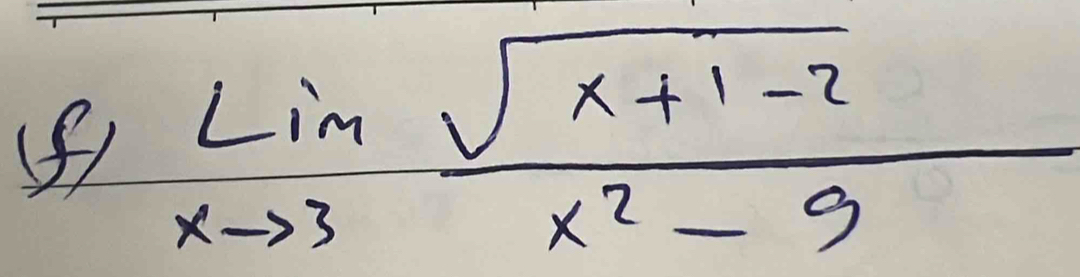 (f) Lim x→3 √(x+1-2) / (x² - 9)